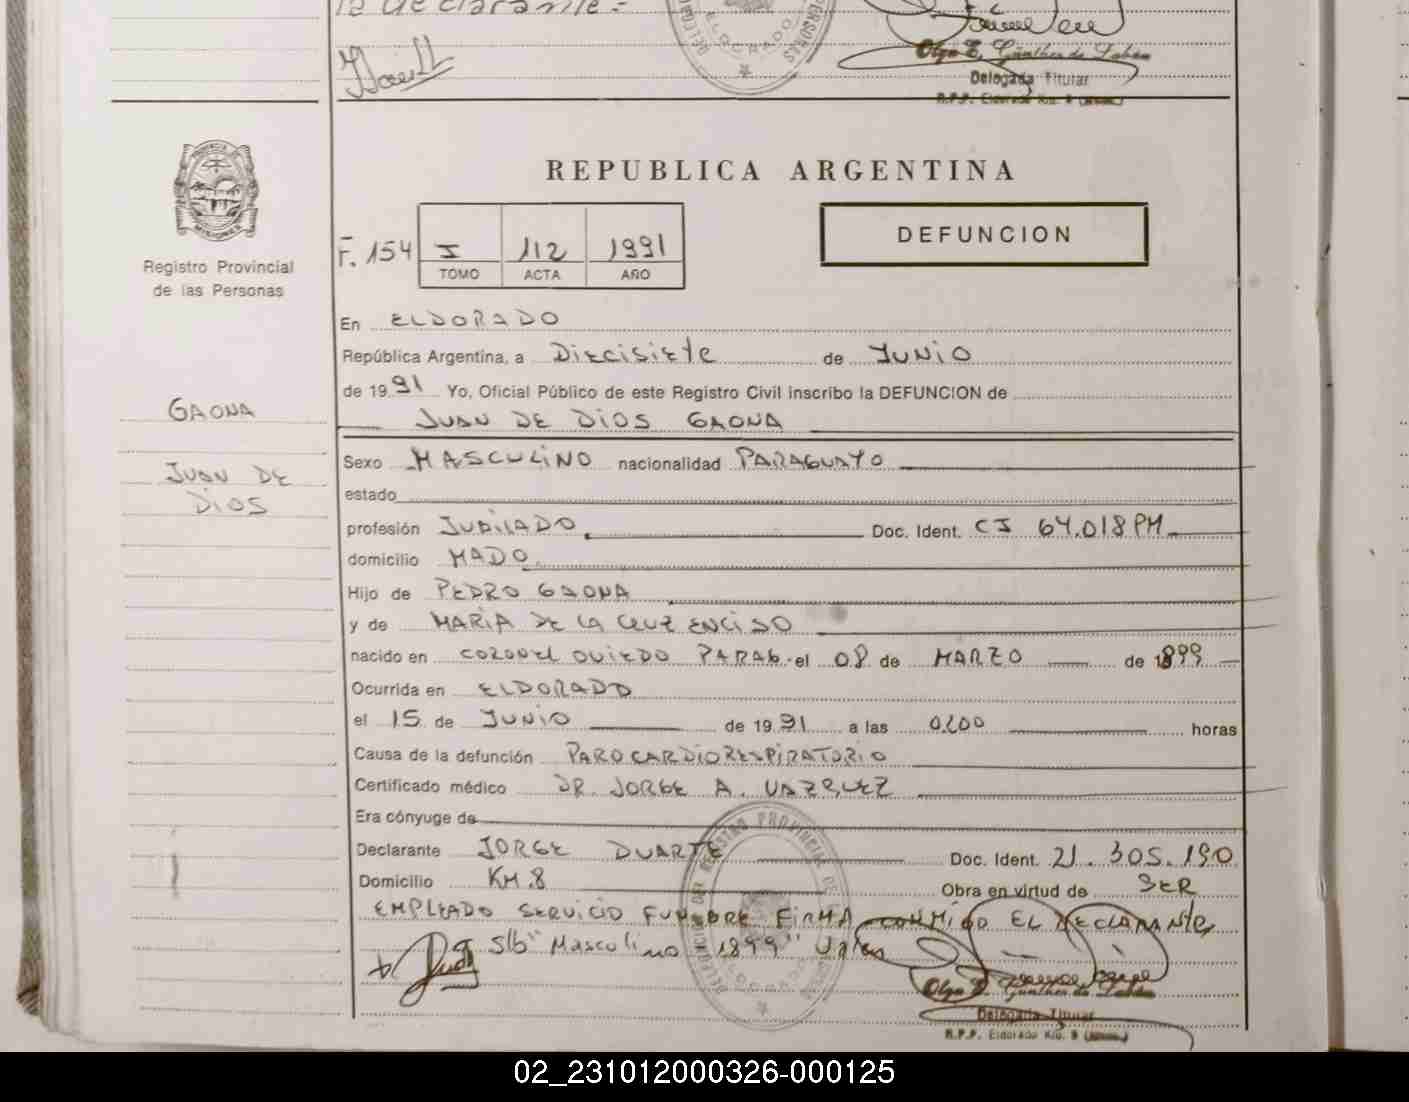 la declarante.-
Olga E. Günther de
Delegada Titular
R.P.P. Eldorado Km. 9
REPUBLICA ARGENTINA
DEFUNCION
F. 154 I 112 1991
TOMO ACTA AÑO
Registro Provincial
de las Personas
En ELDORADO
República Argentina, a DIECISIETE de JUNIO
de 1991 Yo, Oficial Público de este Registro Civil inscribo la DEFUNCION de
JUAN DE DIOS GAONA
GAONA
JUAN DE
DIOS
Sexo MASCULINO nacionalidad PARAGUAYO
estado
profesión JUBILADO. Doc. Ident. CI 64.018 PM
domicilio MADO.
Hijo de PEDRO GAONA
y de MARIA DE LA CRUZ ENCISO
nacido en CORONEL OVIEDO PARAG. el 08 de MARZO de 1899
Ocurrida en ELDORADO
el 15 de JUNIO de 1991 a las 0200 horas
Causa de la defunción PARO CARDIORESPIRATORIO
Certificado médico DR. JORGE A. VAZQUEZ
Era cónyuge de
Declarante JORGE DUARTE Doc. Ident. 21.305.190
Domicilio KM.8 Obra en virtud de SER
EMPLEADO SERVICIO FUNEBRE FIRMA CONMIGO EL DECLARANTE,
S/b "Masculino 1899" Valen
Olga E. Günther de
Delegada Titular
R.P.P. Eldorado Km. 9
02_231012000326-000125